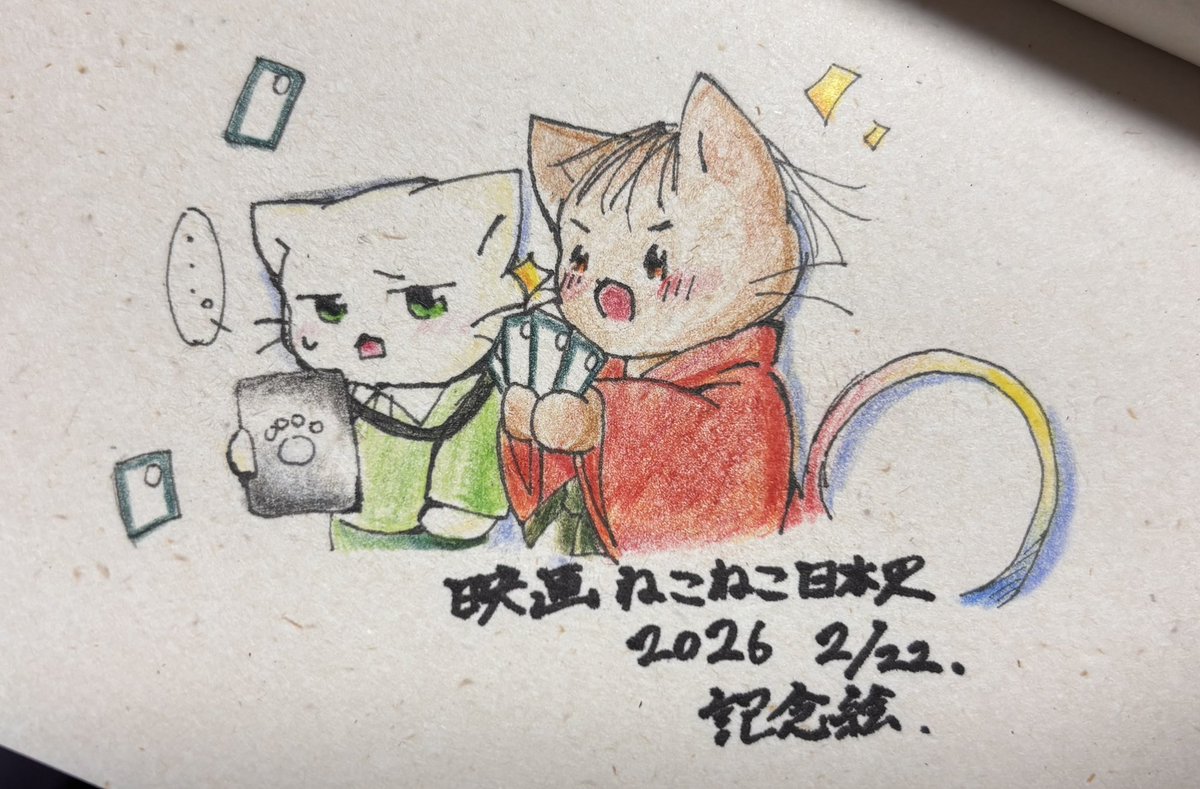 映画 ねこねこ日本史
2026 2/22.
記念絵.